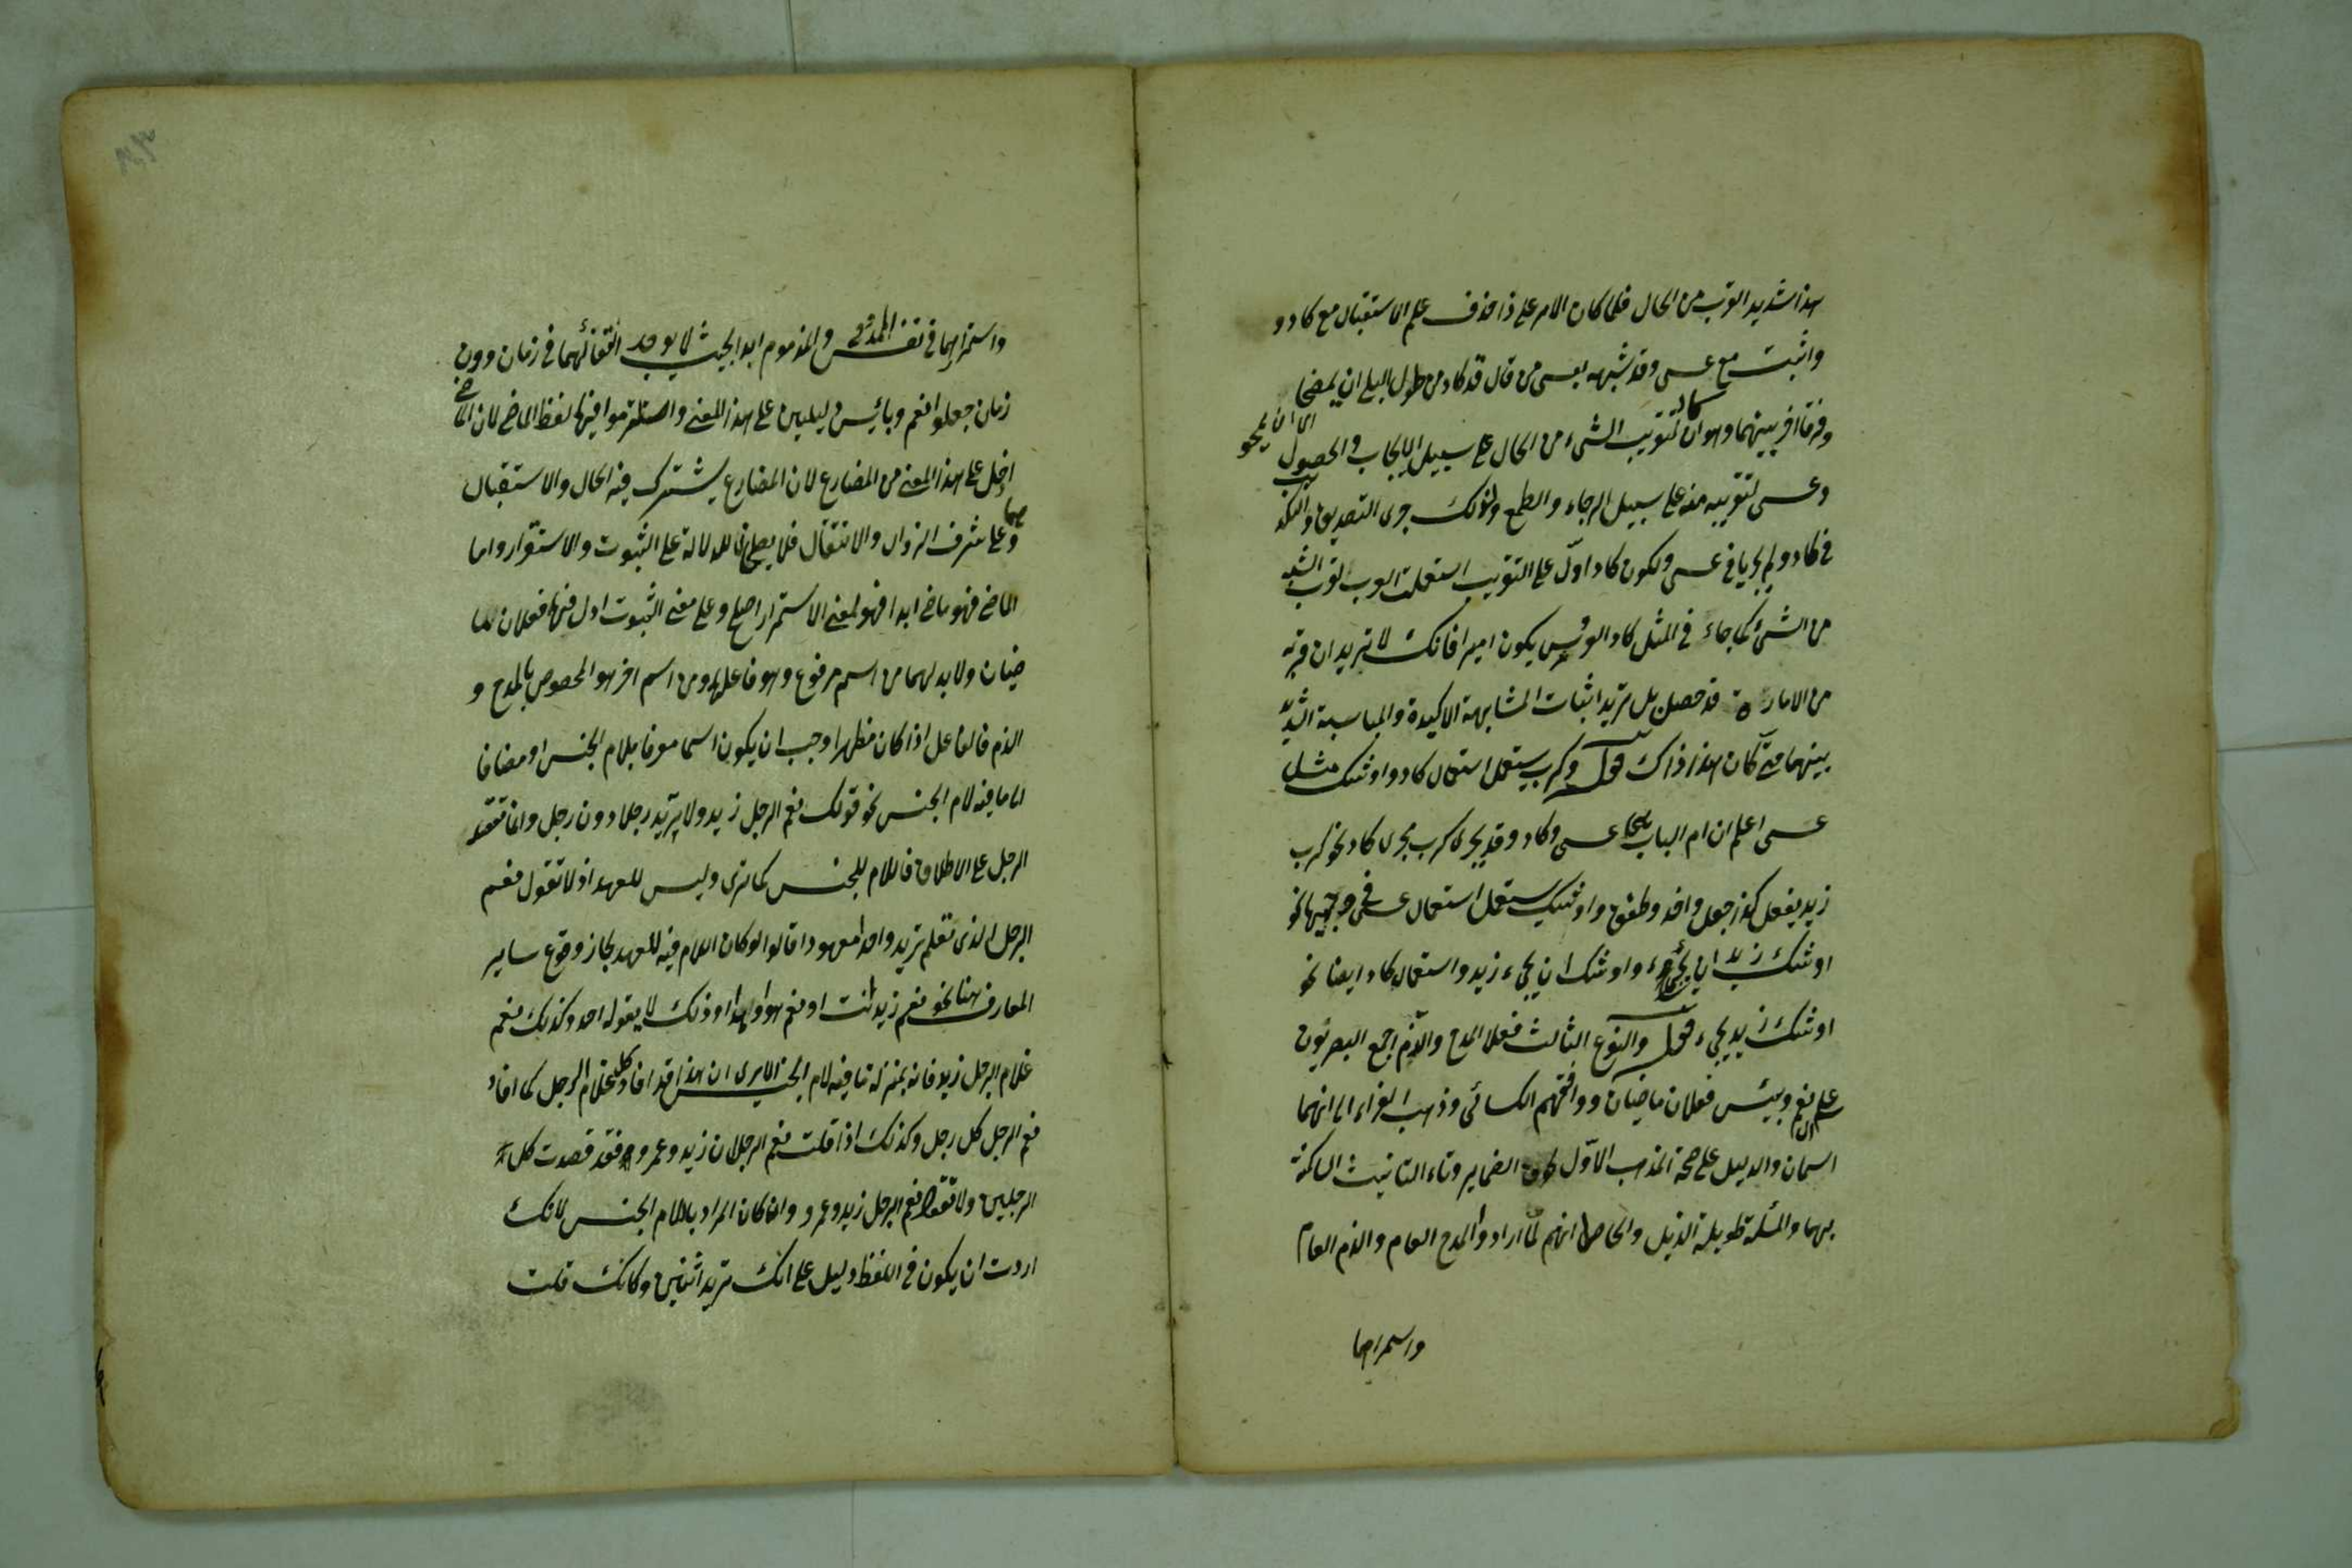 هذا شديد القرب من الحال فلما كان الامر على ذا حذف علم الاستقبال مع كاد و
واثبت مع عسى وقد شبهه بعسى من قال قد كاد من طول البلى ان يمصحا
اى ان يمحو
وفرقا اخر بينهما وهو ان كاد لتقريب الشىء من الحال على سبيل الايجاب والحصول
وعسى لتقريبه منه على سبيل الرجاء والطمع ولذلك جرى التصديق والتكذيب
فى كاد ولم يجريا فى عسى ولكون كاد ادلّ على التقريب استعملت العرب لقرب الشبه
من الشىء كما جاء فى المثل كاد العروس يكون اميرا فانك لا تريد ان قربه
من الامارة قد حصل بل تريد اثبات المشابهة الاكيدة والمناسبة الشديدة
بينهما حتى كان هذا ذاك قوله وكرب يستعمل استعمال كاد واوشك مثل
عسى اعلم ان ام الباب عسى وكاد وقد يجرى كرب مجرى كاد نحو كرب
زيد يفعل كذا وجعل واخذ وطفق واوشك يستعمل استعمال عسى فى وجهيها نحو
اوشك زيد ان يجىء واوشك ان يجىء زيد واستعمال كاد ايضا نحو
اوشك زيد يجىء قوله والنوع الثالث فعلا المدح والذم اجمع البصريون
على ان نعم وبئس فعلان ماضيان ووافقهم الكسائى وذهب الفراء الى انهما
اسمان والدليل على صحة المذهب الاوّل لحوق الضماير وتاء التانيث الساكنة
بهما والمسئلة طويلة الذيل والحاصل انهم لما ارادوا المدح العام والذم العام
واستمرارهما
واستمرارهما فى نفس الممدوح والمذموم ابدا بحيث لا يوجد انتفائهما فى زمان دون
زمان جعلوا نعم وبائس دليلين على هذا المعنى والتزموا فيهما لفظ الماضى لان الماضى
ادخل على هذا المعنى من المضارع لان المضارع يشترك فيه الحال والاستقبال
وهما على شرف الزوال والانتقال فلا يصلحان للدلالة على الثبوت والاستقرار واما
الماضى فهو ماضى ابدا فهو لمعنى الاستمرار اصلح وعلى معنى الثبوت ادل فهما فعلان ما
ضيان ولابد لهما من اسم مرفوع وهو فاعلهما ومن اسم اخر هو المخصوص بالمدح و
الذم فالفاعل اذا كان مظهرا وجب ان يكون اسما معرفا بلام الجنس او مضافا
الى ما فيه لام الجنس نحو قولك نعم الرجل زيد ولا تريد رجلا دون رجل وانما تقصد
الرجل على الاطلاق فاللام للجنس كما ترى وليس للعهد اذ لا تقول نعم
الرجل الذى تعلم تريد واحدا معهودا قالوا لو كان اللام فيه للعهد لجاز وقوع ساير
المعارف هنا نحو نعم زيد انت او نعم هو او هذا وذلك لا يقوله احد وكذلك نعم
غلام الرجل زيد فانه بمنزلة ما فيه لام الجنس الا ترى ان هذا قد افاد كل غلام الرجل كما افاد
نعم الرجل كل رجل وكذلك اذا قلت نعم الرجلان زيد وعمرو فقد قصدت كل
الرجلين ولا تقول نعم الرجل زيد وعمرو وان كان المراد باللام الجنس لانك
اردت ان يكون فى اللفظ دليل على انك تريد اثنين وكانك قلت